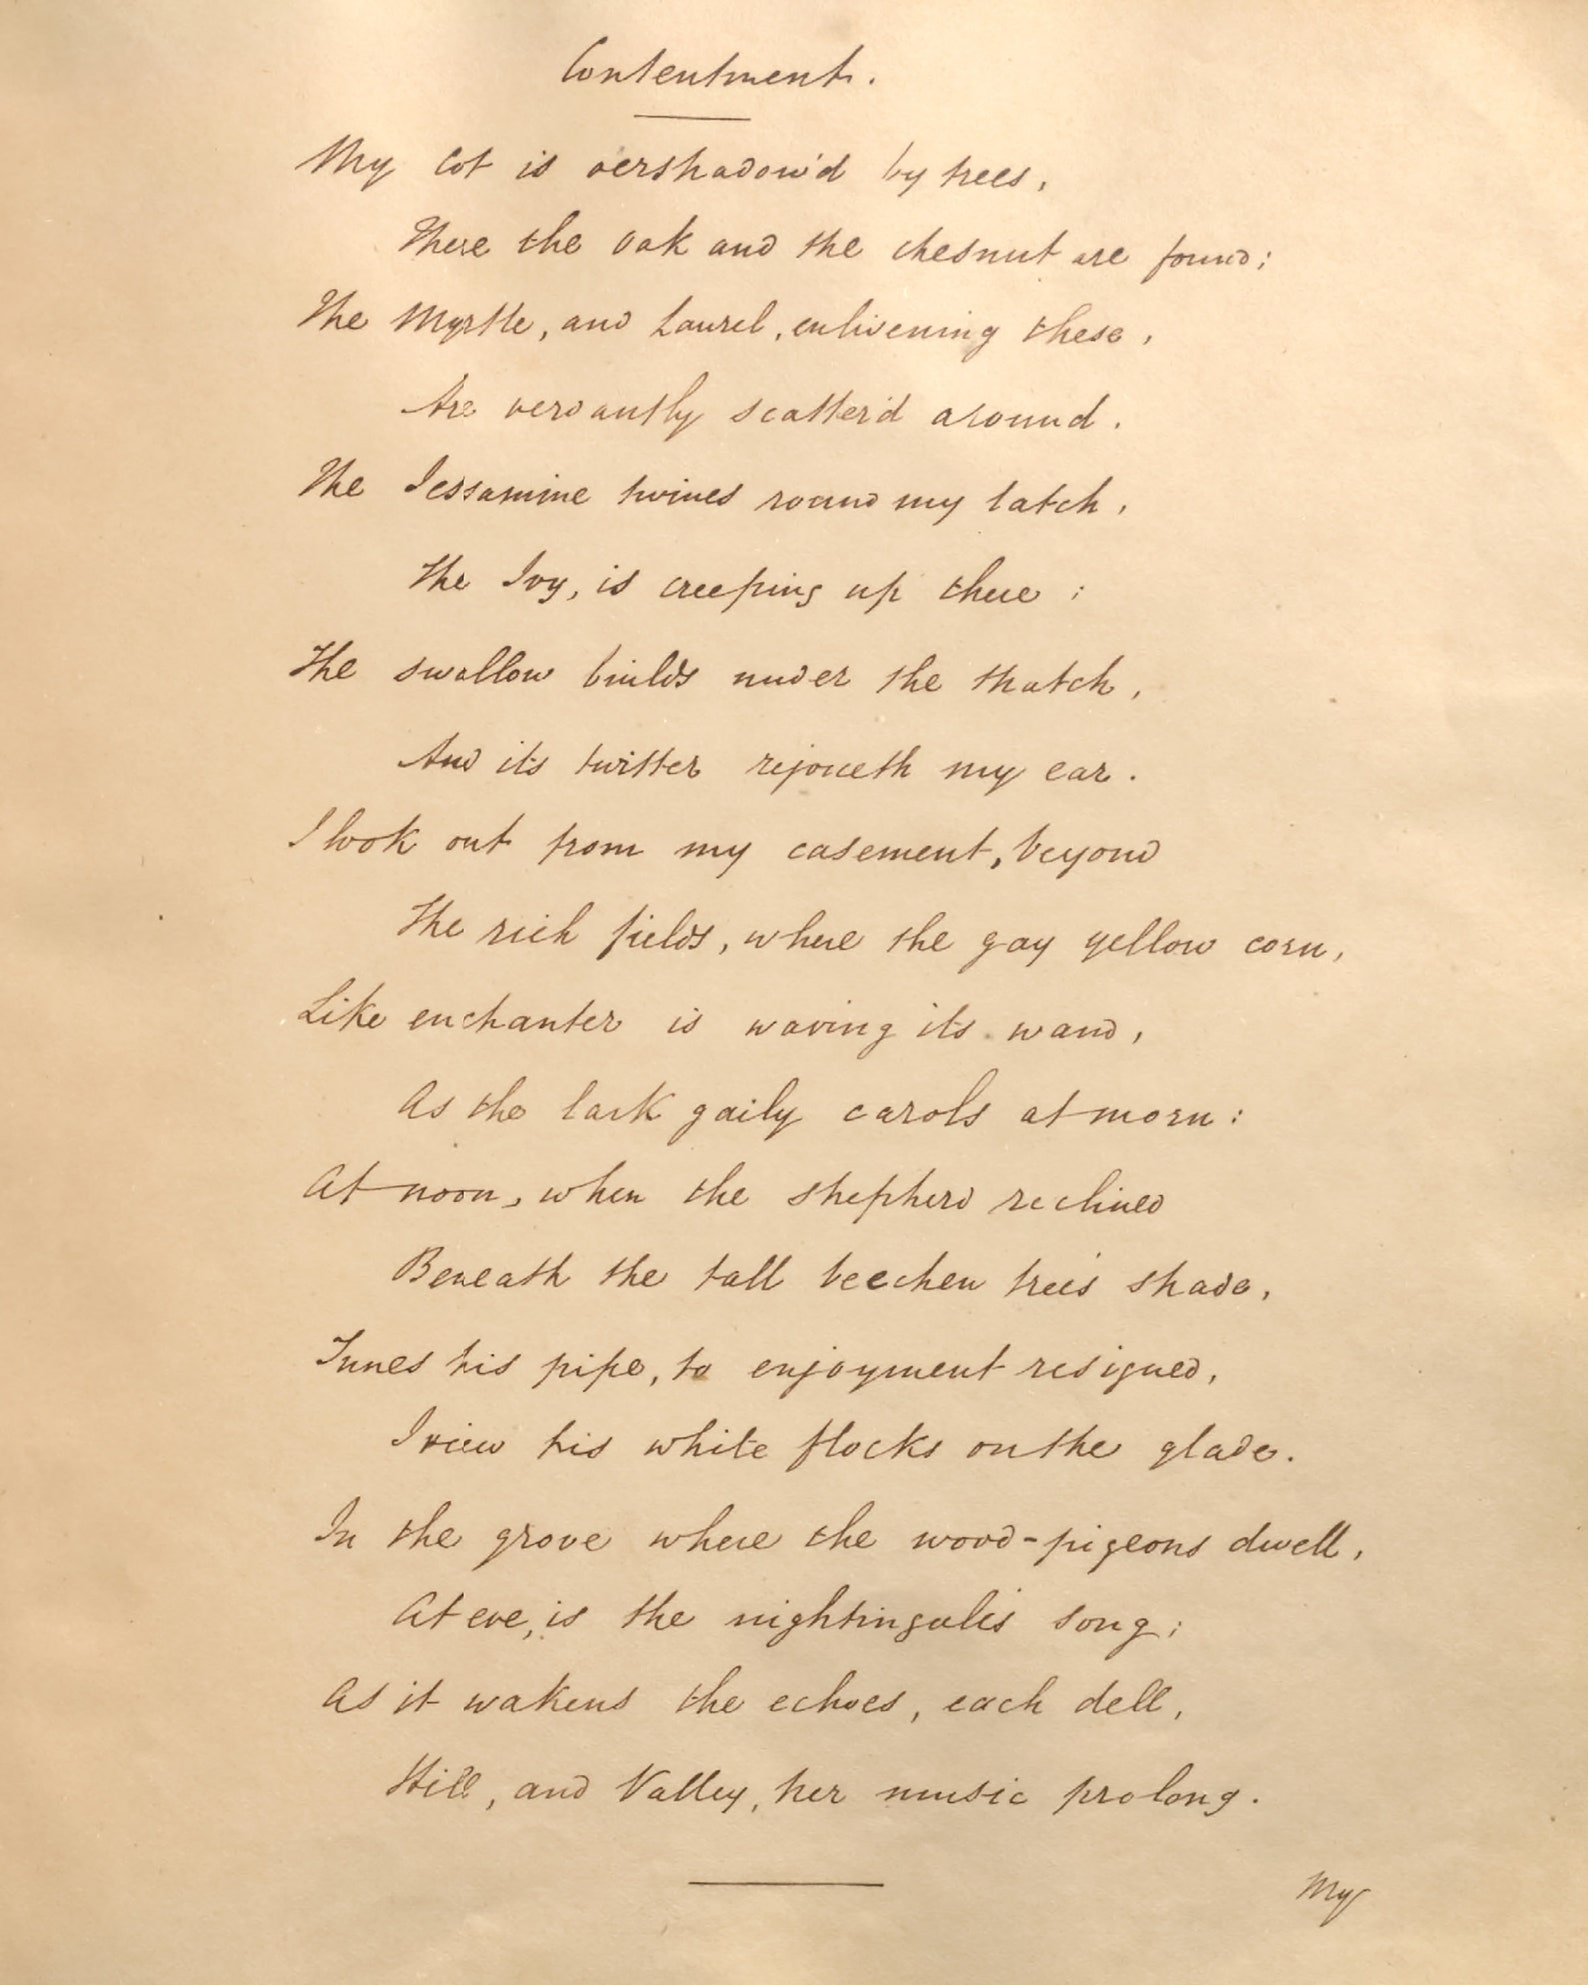 Contentment.
My Cot is oershadow'd by trees,
There the Oak and the chesnut are found;
The Myrtle, and Laurel, enlivening these,
Are verdantly scatter'd around.
The Jessamine twines round my latch,
The Ivy, is creeping up there;
The swallow builds under the thatch,
And its twitter rejoiceth my ear.
I look out from my casement, beyond
The rich fields, where the gay yellow corn,
Like enchanter is waving its wand,
As the lark gaily carols at morn:
At noon, when the shepherd reclined
Beneath the tall beechen tree's shade,
Tunes his pipe, to enjoyment resigned,
I view his white flocks on the glade.
In the grove where the wood-pigeons dwell,
At eve, is the nightingale's song;
As it wakens the echoes, each dell,
Hill, and Valley, her music prolong.
My